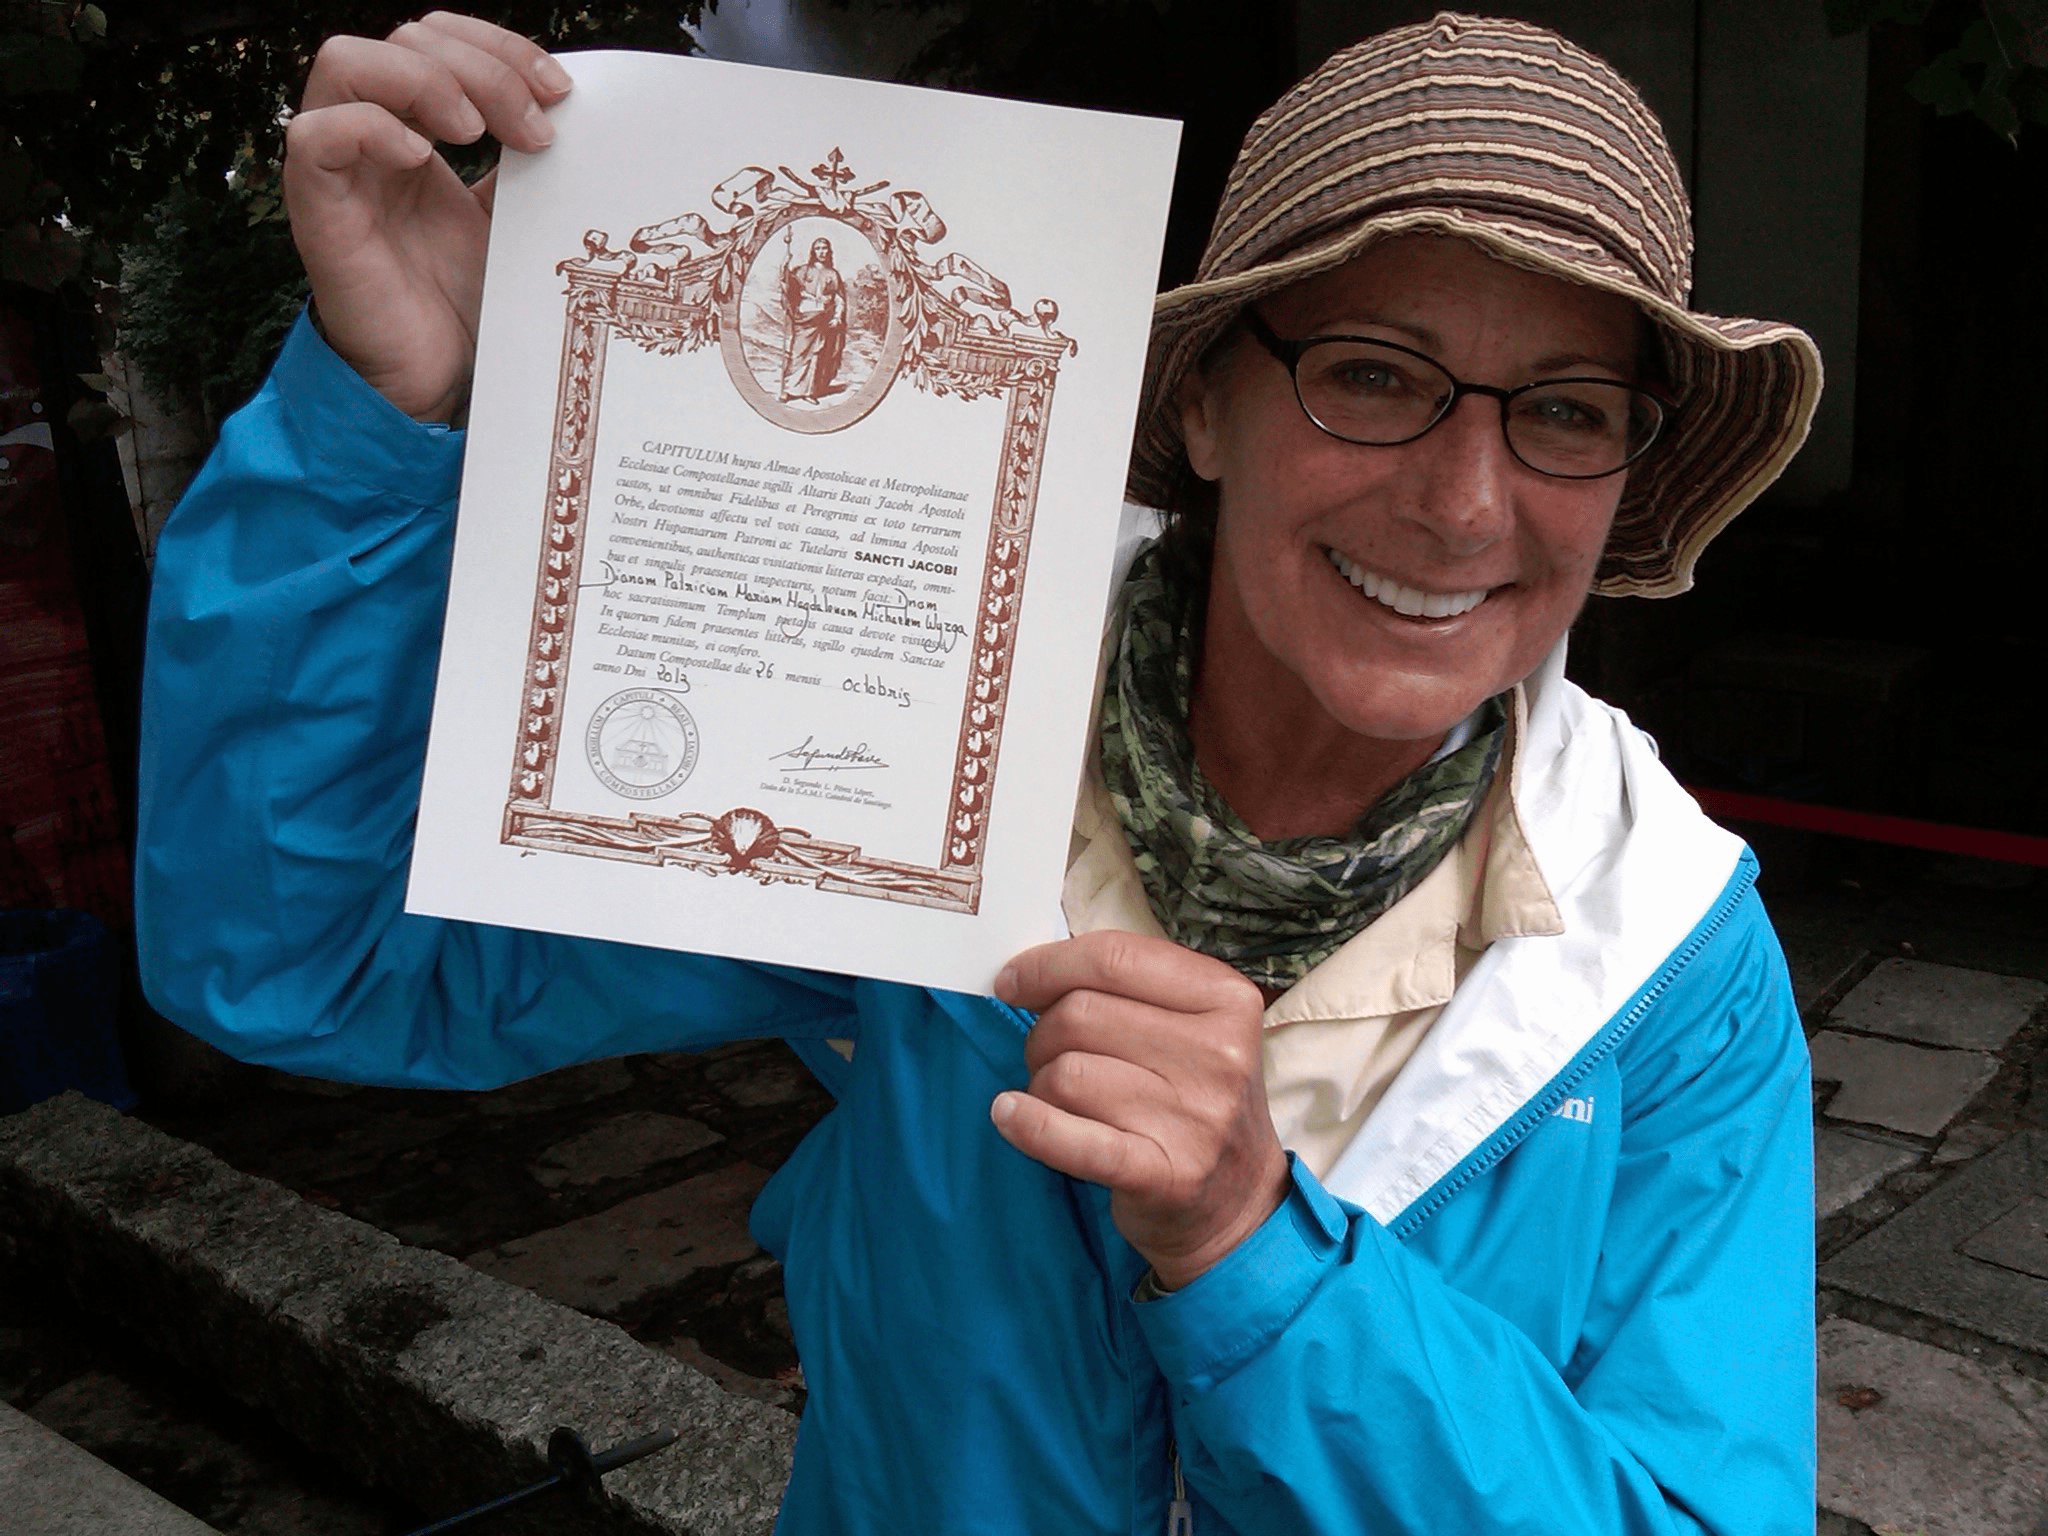 CAPITULUM hujus Almae Apostolicae et Metropolitanae
Ecclesiae Compostellanae sigilli Altaris Beati Jacobi Apostoli
custos, ut omnibus Fidelibus et Peregrinis ex toto terrarum
Orbe, devotionis affectu vel voti causa, ad limina Apostoli
Nostri Hispaniarum Patroni ac Tutelaris SANCTI JACOBI
convenientibus, authenticas visitationis litteras expediat, omni-
bus et singulis praesentes inspecturis, notum facit: Dnam
Dianam Patriciam Mariam Magdalenam Michaelem Wyzga
hoc sacratissimum Templum pietatis causa devote visitasse.
In quorum fidem praesentes litteras, sigillo ejusdem Sanctae
Ecclesiae munitas, ei confero.
Datum Compostellae die 26 mensis octobris
anno Dni 2013
SIGILLUM CAPITULI BEATI JACOBI COMPOSTELLAE
D. Segundo L. Pérez López,
Deán de la S.A.M.I. Catedral de Santiago.
oni